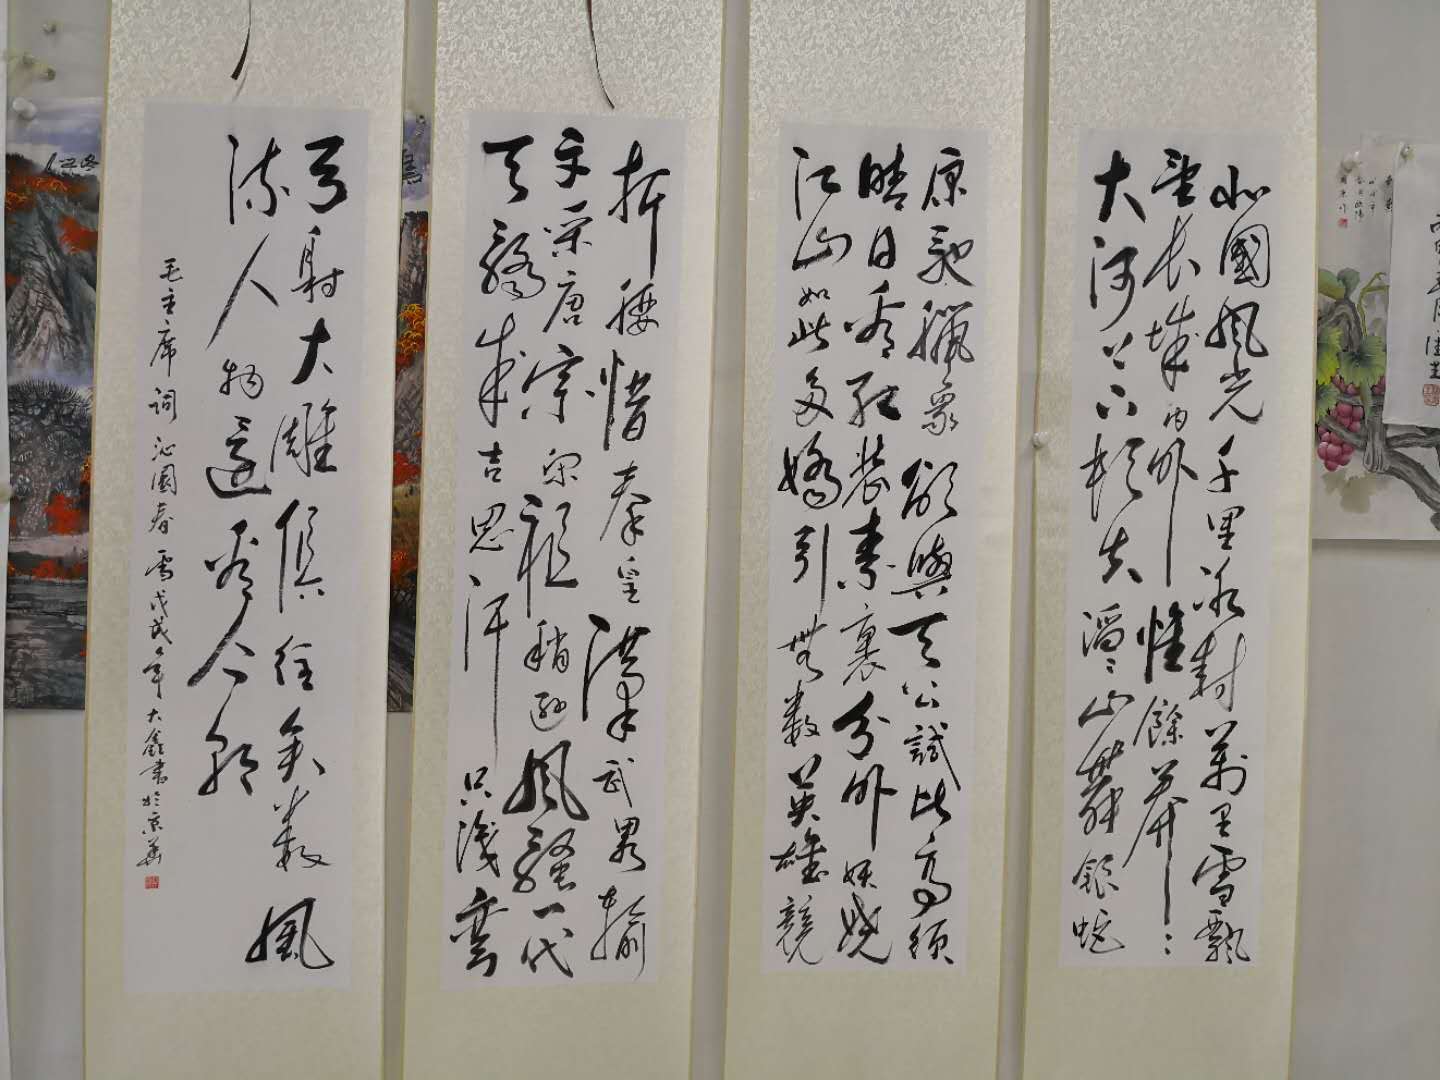 北國風光千里冰封萬里雪飄
望長城內外惟餘莽〻
大河上下頓失滔〻山舞銀蛇
原馳臘象欲與天公試比高須
晴日看紅裝素裹分外妖嬈
江山如此多嬌引無數英雄競
折腰惜秦皇漢武畧輸
文采唐宗宋祖稍遜風騷一代
天驕成吉思汗只識彎
弓射大雕俱往矣數風
流人物還看今朝
毛主席詞沁園春雪戊戌年大鑫書於京華